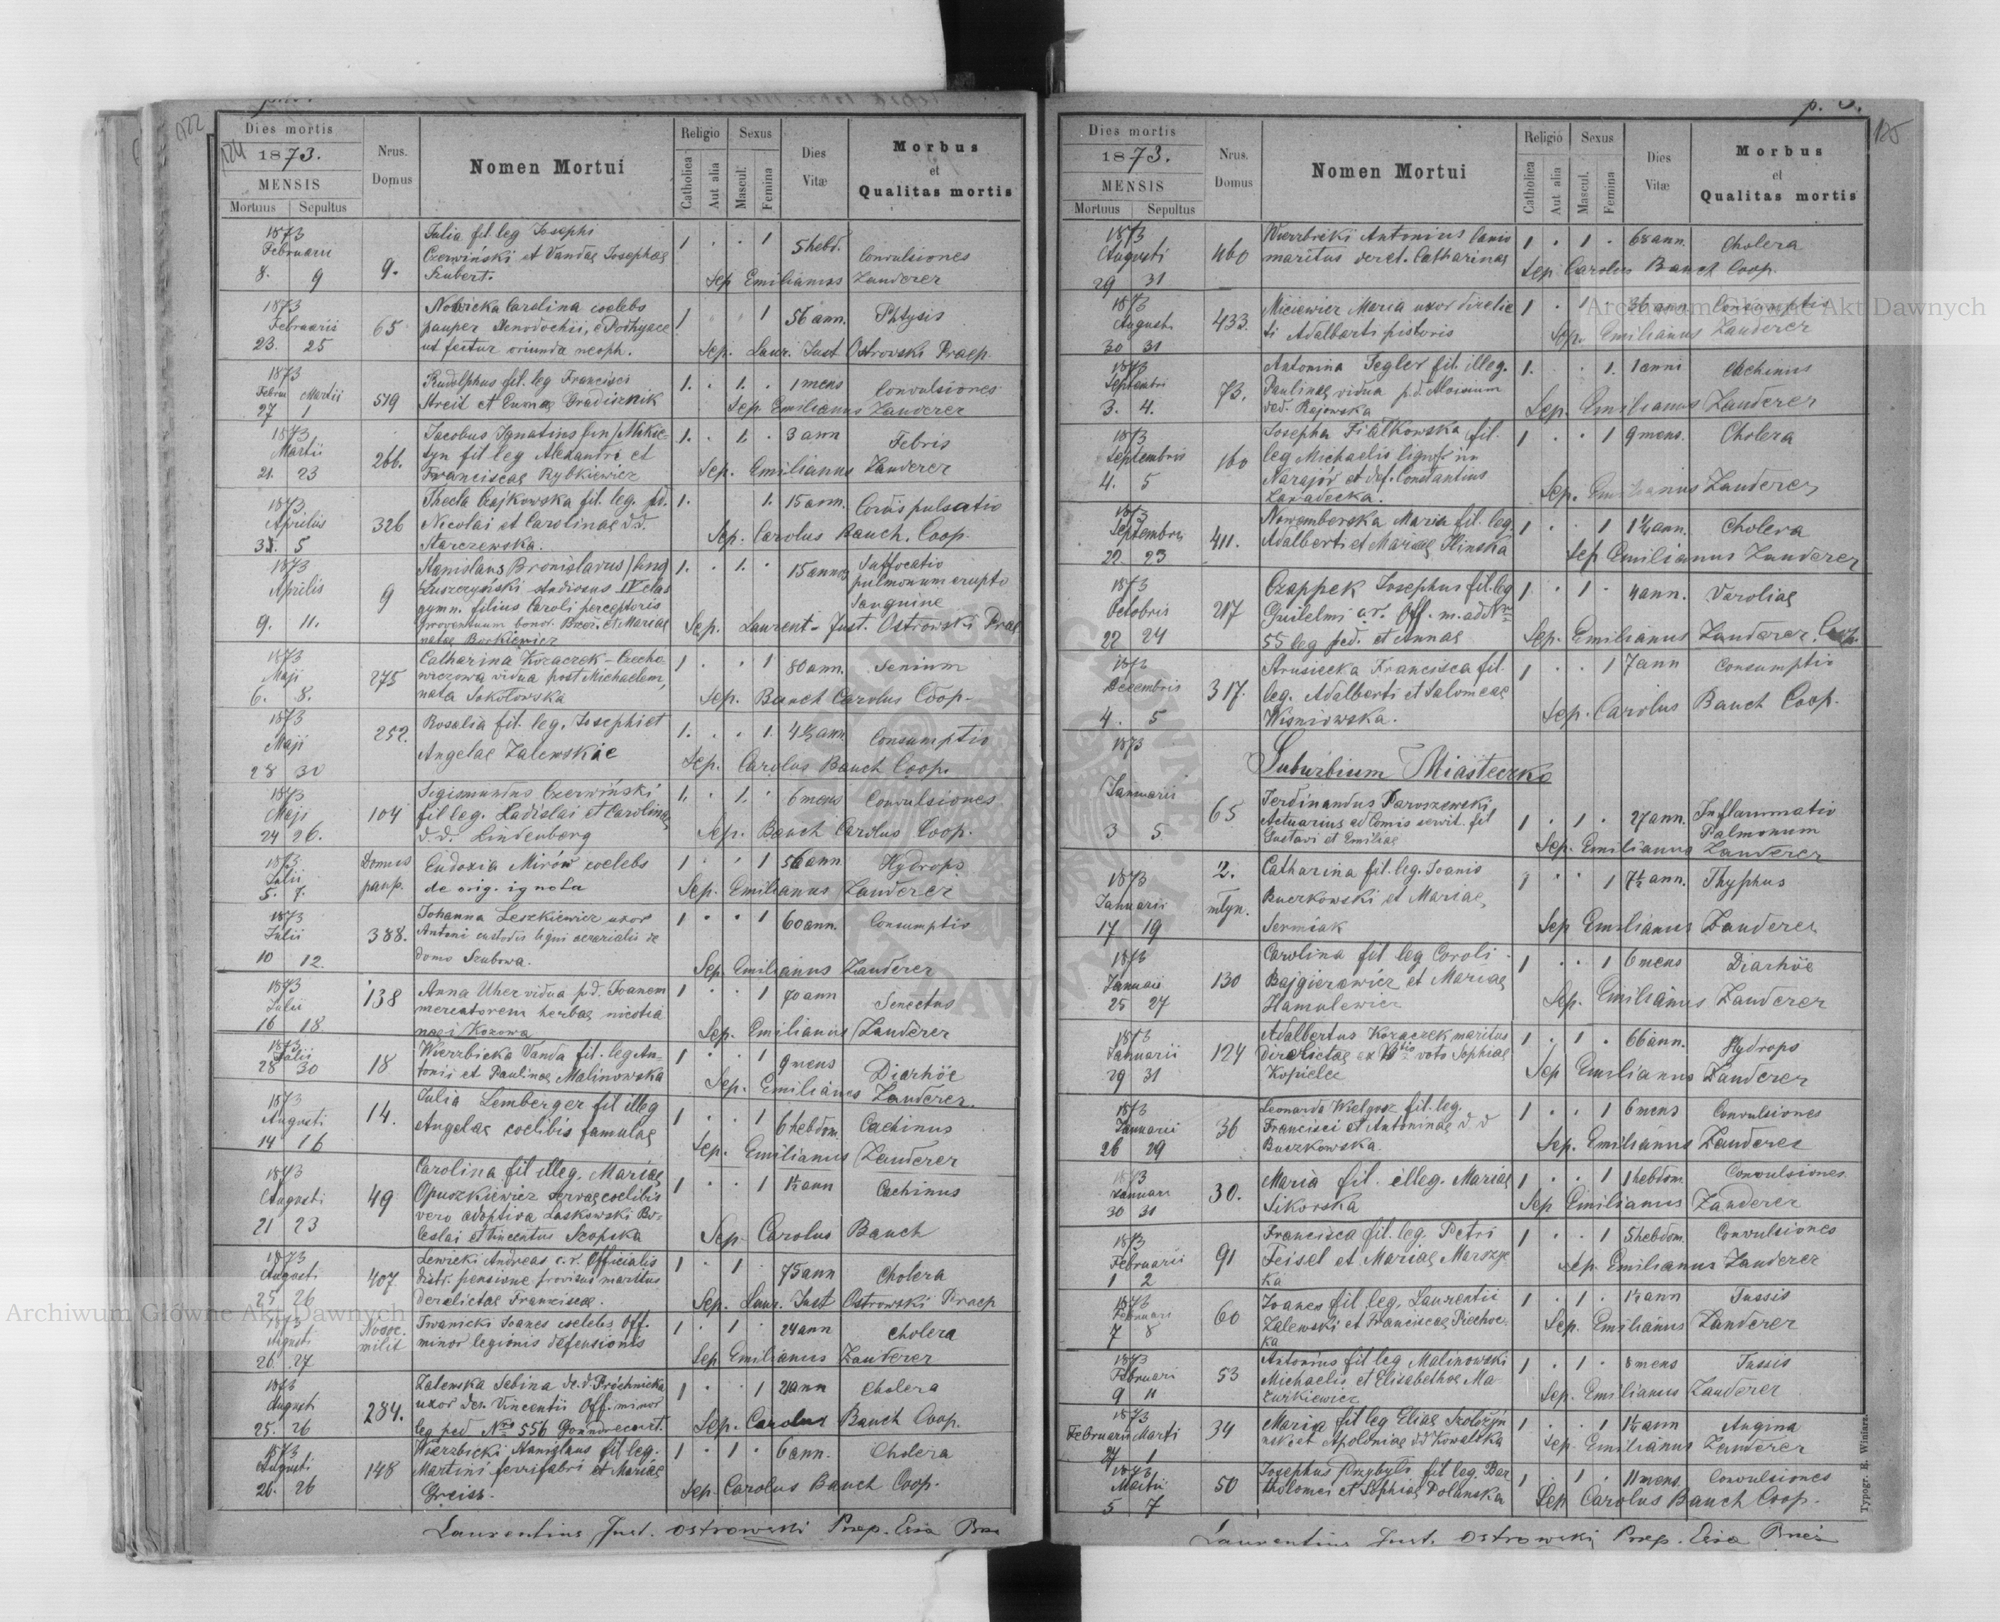 124
Dies mortis
1873.
MENSIS
Mortuus Sepultus
Nrus. Domus
Nomen Mortui
Religio
Catholica
Aut alia
Sexus
Mascul.
Femina
Dies Vitæ
Morbus et Qualitas mortis
1873 Julia fil. leg Josephi
Februarii Czerwiński et Vandae Josephae 1 . . 1 5 hebd. Convulsiones
8. 9 9. Sep Emilianus Zanderer
1873 Nowicka Carolina coelebs
Februarii 65 pauper Xenodochii, e Podhyace 1 1 56 ann. Phtysis
23. 25 ut fertur oriunda neoph. Sep. Laur. Just Ostrowski Praep
1873 Rudolphus fil. leg Francisci 1. . 1. . 1 mens Convulsiones
Martii 519 Streit et
27 1 Sep Emilianus Zanderer
1873 Jacobus Ignatius 1. . 1. . 3 ann Febris
Martii 266. fil leg Alexandri et
21. 23 Franciscae Rybkiewicz Sep. Emilianus Zanderer
1873 Thecla Czajkowska fil. leg. 1. 1. 15 ann. Cordis pulsatio
Aprilis 326 Nicolai et Carolinae d.d.
5 Starczewska. Sep. Carolus Bauch. Coop.
1873 Stanislaus Bronislavus 1. . 1. . 15 annos Suffocatio
Aprilis 9 IV clas pulmonum erupto
gymn. filius Caroli perceptoris Sanguine
9. 11. et Mariae Sep. Laurent. Just. Ostrowski Praep
natae Borkiewicz
1873 Catharina Kozaczek 1 . . 1 80 ann. Senium
Maji 275 vidua post Michaelem,
6. 8. nata Sokołowska Sep. Bauch Carolus Coop.
1873 Rosalia fil. leg. Josephi et 1. . . 1. 4½ ann Consumptio
Maji 252. Angelae Zalewskie
28 30 Sep. Carolus Bauch Coop.
1873 Sigismundus Czerwiński 1. 1. . 6 mens Convulsiones
Maji 104 fil leg. Ladislai et Carolinae
24 26. d.d. Lindenberg Sep. Bauch Carolus Coop.
1873 Domus Eudoxia Mirów coelebs 1 . . 1 56 ann Hydrops
Julii paup. de orig. ignota
5. 7. Sep. Emilianus Zanderer
1873 Johanna Leszkiewicz uxor 1 . . 1 60 ann. Consumptio
Julii 388. Antoni custodis ligni aerarialis de
10 12. domo Szubowa. Sep. Emilianus Zanderer
1873 Anna Uher vidua p.d. Joanem 1 . . 1 70 ann Senectus
Julii 138 mercatorem herbae nicotia
16 18 Kozowa Sep. Emilianus Zanderer
1873 Wierzbicka Vanda fil. leg An- 1 . . 1 9 mens Diarhöe
Julii 18 tonii et Paulinae Malinowska
28 30 Sep. Emilianus Zanderer.
1873 Julia Lemberger fil illeg 1 . . 1 6 hebdom. Cachinus
Augusti 14. Angelae coelibis famulae
14 16 Sep. Emilianus Zanderer
1873 Carolina fil illeg. Mariae 1 . . 1 1½ ann Cachinus
Augusti 49 Opuszkiewicz servae coelibis
vero adoptiva Laskowski Bo-
21 23 leslai et Vincentus Scopska Sep. Carolus Bauch
1873 Lewicki Andreas c.r. Officialis 1 . 1 . 75 ann Cholera
Augusti 407 distr. pensione provisus maritus
25 26 derelictae Franciscae. Sep. Laur. Just Ostrowski Praep
1873 Iwanicki Joanes coelebs Off. 1 . 1 24 ann Cholera
Augusti milit minor legionis defensionis
26. 27 Sep Emilianus Zanderer
1873 Zalewska Sabina de. d. Próchnicka 1 . . 1 21 ann Cholera
Augusti 284. uxor der. Vincentii Off. minor
25. 26 leg ped Nro 556 Sep. Carolus Bauch Coop.
1873 Wierzbicki Stanislaus fil leg. 1 . 1 . 6 ann. Cholera
Augusti 148 Martini ferrifabri et Mariae
26. 26 Sep Carolus Bauch Coop.
Laurentius Just. Ostrowski Praep.
p. 3.
125
Dies mortis
1873.
MENSIS
Mortuus Sepultus
Nrus. Domus
Nomen Mortui
Religio
Catholica
Aut alia
Sexus
Mascul.
Femina
Dies Vitæ
Morbus et Qualitas mortis
1873 Wierzbicki Antonius 1 . 1 . 68 ann. Cholera
Augusti 460 maritus derel. Catharinae
29 31 Sep Carolus Bauch Coop.
1873 Miciewicz Maria uxor derelic 1 . 1 . 36 ann Consumptio
August. 433. ti Adalberti pistoris
30 31 Sep. Emilianus Zanderer
1873 Antonina Segler fil. illeg. 1. . . 1. 1 anni Cachinus
Septembri 73. Paulinae vidua p.d. Aloisium
3. 4. Rajowska Sep. Emilianus Zanderer
1873 Josepha Fiałkowska fil. 1 . . 1 9 mens. Cholera
Septembris 160 leg Michaelis
4. 5 Narajów et def. Constantius
Sep. Emilianus Zanderer
1873 Nowemborska Maria fil. leg 1 . . 1 1½ ann. Cholera
Septembris 411. Adalberti et Mariae Ilinska
22. 23 Sep Emilianus Zanderer
1873 Czappek Josephus fil. leg 1 . 1 . 4 ann. Varolias
Octobris 217 Guilelmi c.r. Off. m. ad Nrum
22 24 55 leg ped. et Annae Sep. Emilianus Zanderer. Coop.
1873 Strusiecka Francisca fil. 1 . . 1 7 ann Consumptio
Decembris 317. leg. Adalberti et Salomeae
4. 5 Wiśniowska. Sep. Carolus Bauch Coop.
1873
Suburbium Miasteczko
Januarii 65 Ferdinandus Paroszewski 1 . 1 . 27 ann. Inflammatio
Actuarius ad Comis servit. fil Pulmonum
3 5. Gustavi et Emiliae Sep. Emilianus Zanderer
1873 2. Catharina fil. leg. Joanis 1 . . 1 7½ ann. Thyphus
Januarii młyn. Buczkowski et Mariae
17 19 Serniak Sep Emilianus Zanderer
1873 Carolina fil leg Caroli 1 . . 1 6 mens Diarhöe
Januarii 130 Bajgierowicz et Mariae
25 27 Hamulewicz Sep. Emilianus Zanderer
1873 Adalbertus Kozaczek maritus 1 . 1 . 66 ann. Hydrops
Januarii 124 derelictae ex voto Sophiae
29 31 Kopielec Sep Emilianus Zanderer
1873 Leonarda Wielgosz fil. leg. 1 . . 1 6 mens Convulsiones
Januarii 36 Francisci et Antoninae d.d
26 29 Buczkowska Sep. Emilianus Zanderer
1873 Maria fil. illeg. Mariae 1 . . 1 1 hebdom. Convulsiones
Januari 30. Sikorska
30 31 Sep Emilianus Zanderer
1873 Francisca fil. leg. Petri 1 . . 1 5 hebdom. Convulsiones
Februarii 91 Feisel et Mariae Marszyc
1 2 ka Sep. Emilianus Zanderer
1873 Joanes fil leg. Laurentii 1 . 1 . 1½ ann Tussis
Februari 60 Zalewski et Franciscae Piechoc-
7 8 ka Sep. Emilianus Zanderer
1873 Antonius fil leg Malinowski 1 . 1 . 8 mens Tussis
Februari 53 Michaelis et Elisabethae Ma-
9 11 zurkiewicz Sep. Emilianus Zanderer
1873 Maria fil leg Eliae 1 . . 1 1½ ann Angina
Februarii Marti 34 et Apoloniae dd Kowalska
1 Sep. Emilianus Zanderer
1873 Josephus Przybyli fil leg. Bar 1 . 1 . 11 mens. Convulsiones
Martii 50 tholomei et Sophiae Polanska
5 7 Sep Carolus Bauch Coop.
Laurentius Just. Ostrowski Praep.
Typogr. E. Winiarz.
Archiwum Główne Akt Dawnych
Archiwum Główne Akt Dawnych